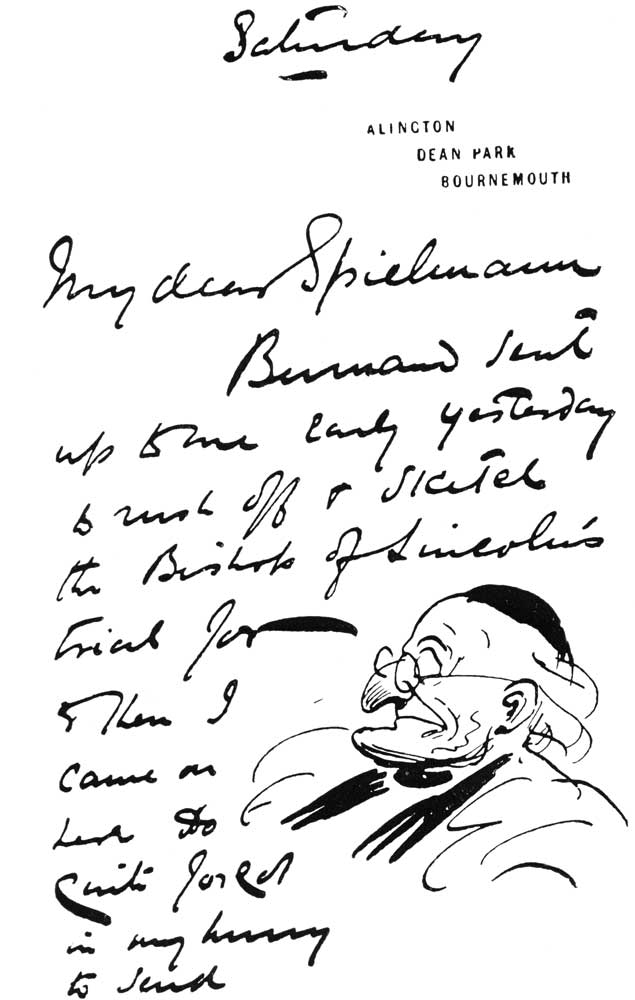 Saturday
ALINGTON
DEAN PARK
BOURNEMOUTH
My dear Spielmann
Burnand sent
up to me early yesterday
to rush off & sketch
the Bishop of Lincoln's
trial for
& then I
came on
here so
quite forgot
in my hurry
to send